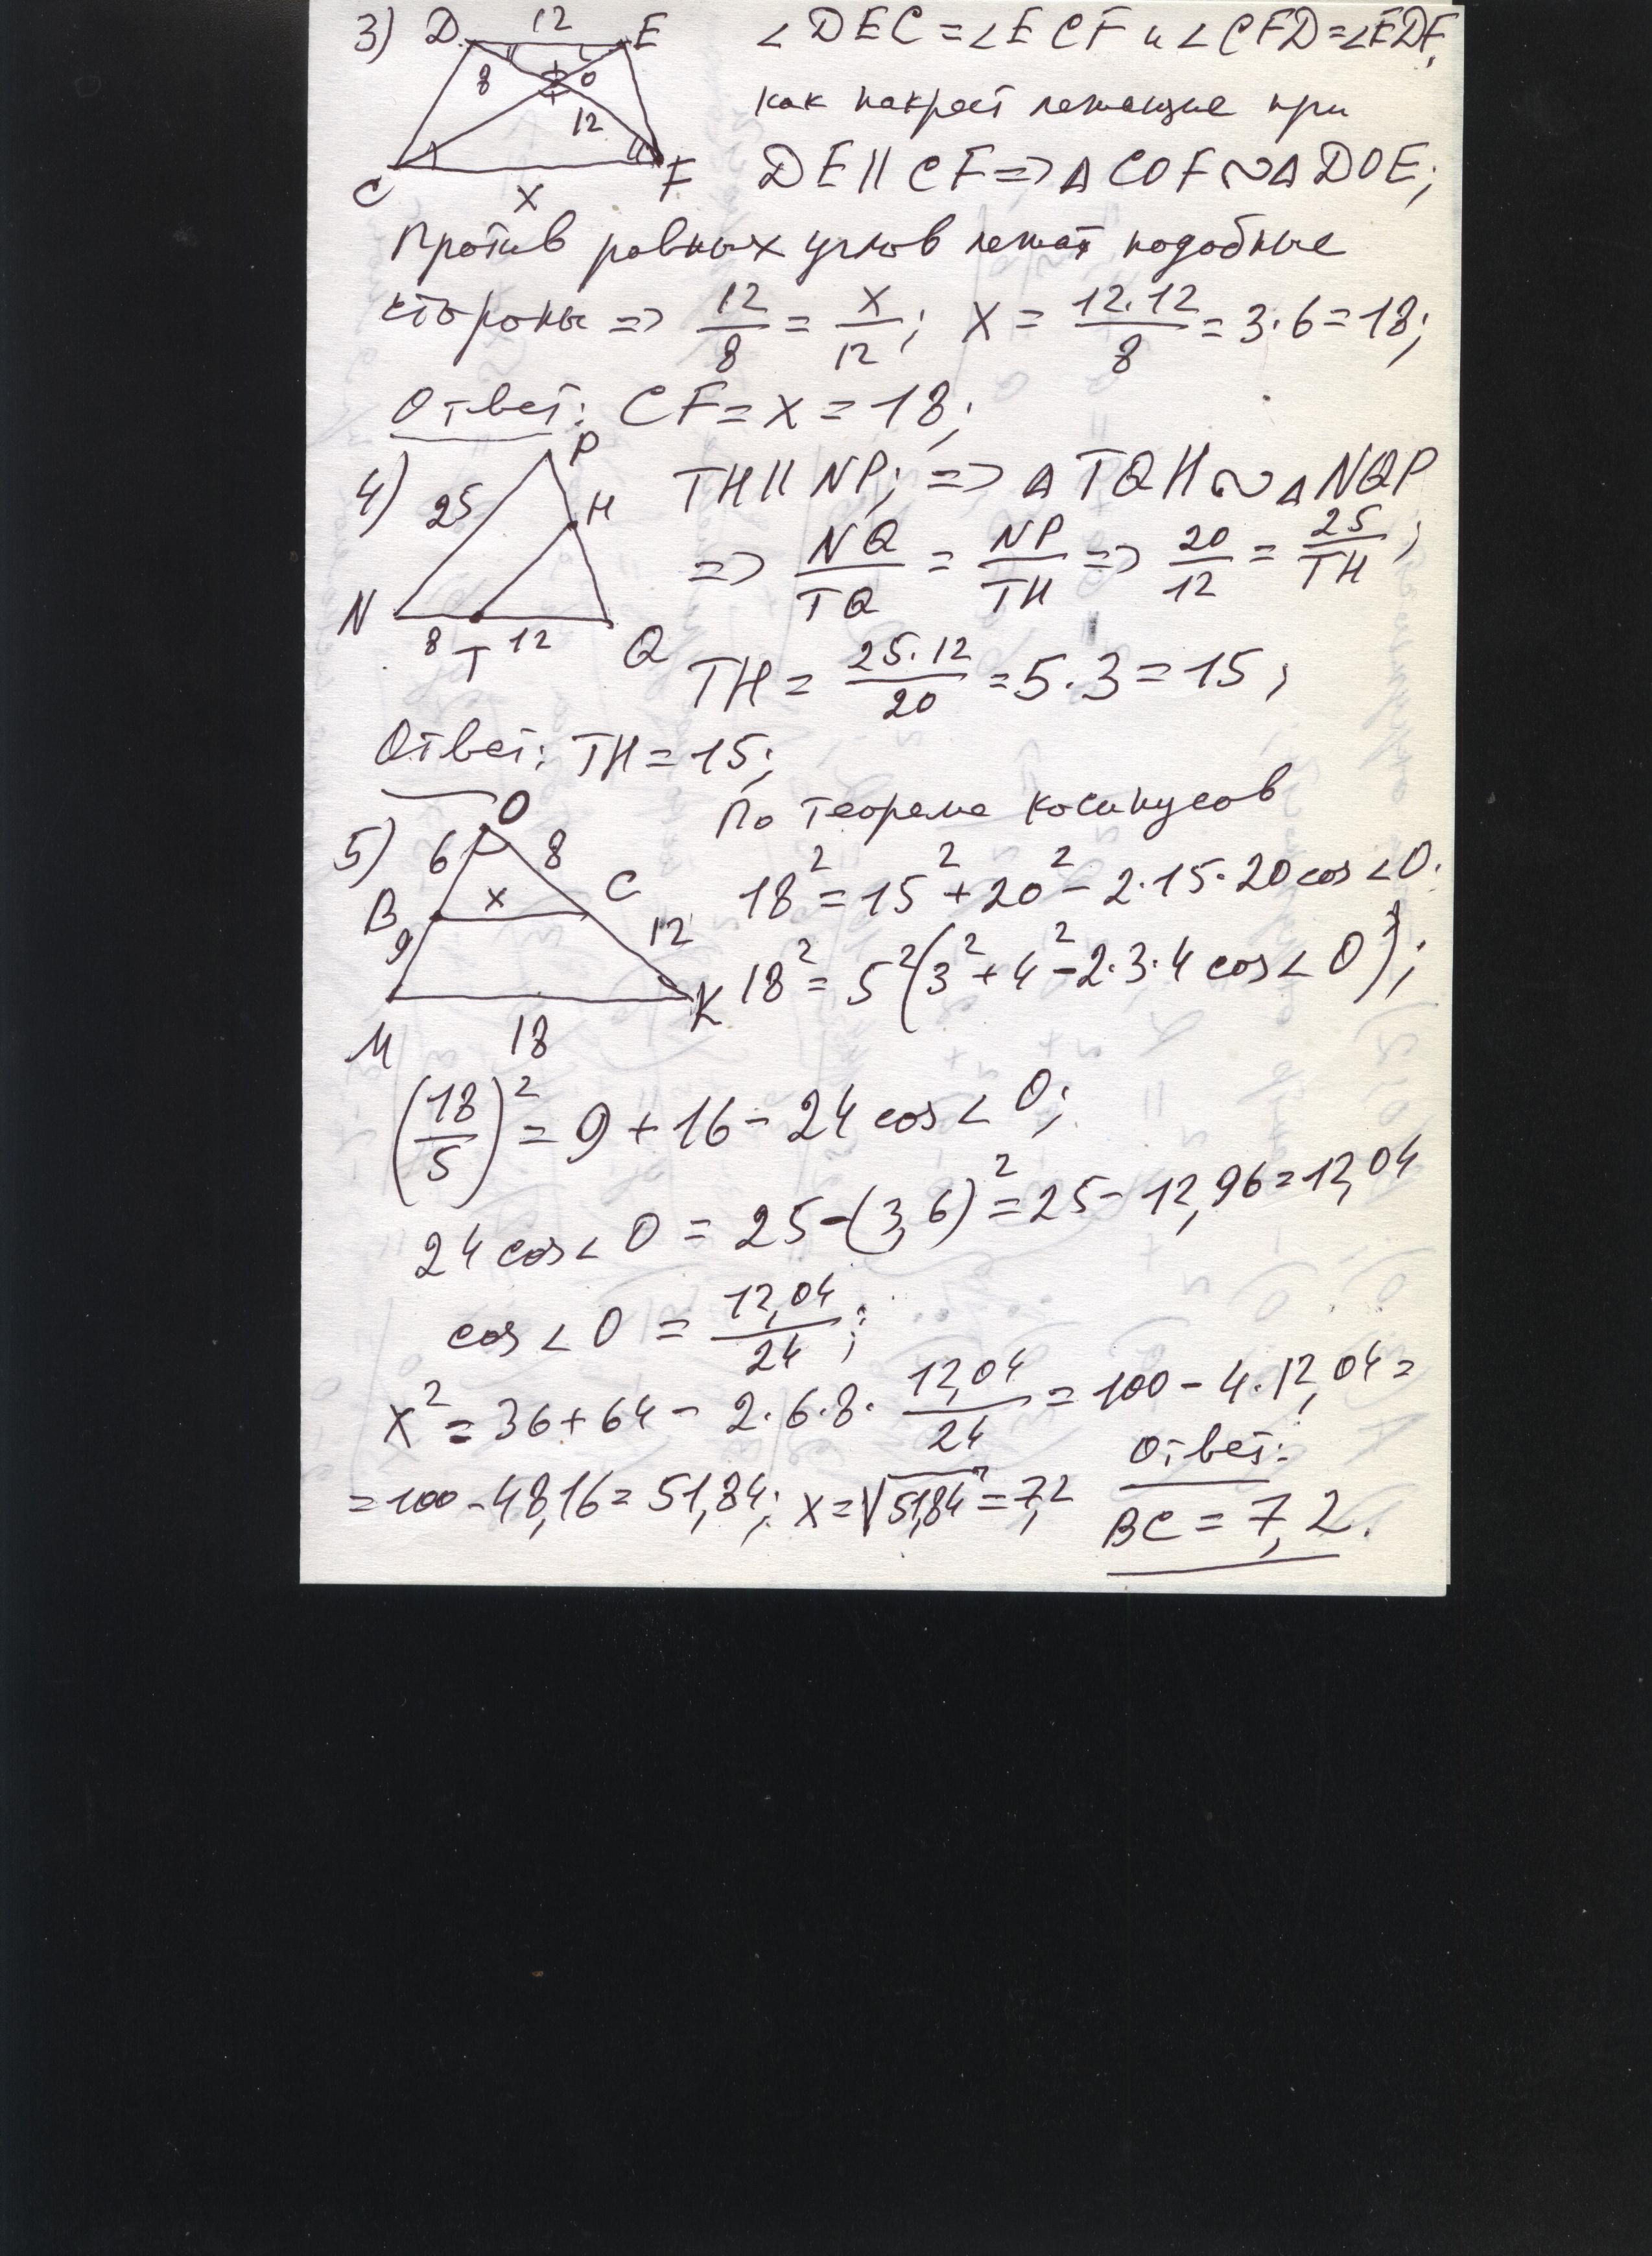 3) D 12 E ∠DEC = ∠ECF и ∠CFD = ∠EDF,
8 O как накрест лежащие при
12
C X F DE || CF => △COF ~ △DOE;
Против равных углов лежат подобные
стороны => 12/8 = x/12; x = 12·12/8 = 3·6 = 18;
Ответ: CF = x = 18;
4) P TH || NP; => △TQH ~ △NQP
25 H => NQ/TQ = NP/TH => 20/12 = 25/TH;
N 8 T 12 Q TH = 25·12/20 = 5·3 = 15;
Ответ: TH = 15;
O По теореме косинусов
5) 6 8 18² = 15² + 20² - 2·15·20 cos ∠O.
B x C
9 12 18² = 5²(3² + 4² - 2·3·4 cos ∠O);
M 18 K
(18/5)² = 9 + 16 - 24 cos ∠O;
24 cos ∠O = 25 - (3,6)² = 25 - 12,96 = 12,04
cos ∠O = 12,04/24;
x² = 36 + 64 - 2·6·8· 12,04/24 = 100 - 4·12,04 =
= 100 - 48,16 = 51,84; x = √51,84 = 7,2 Ответ:
BC = 7,2.